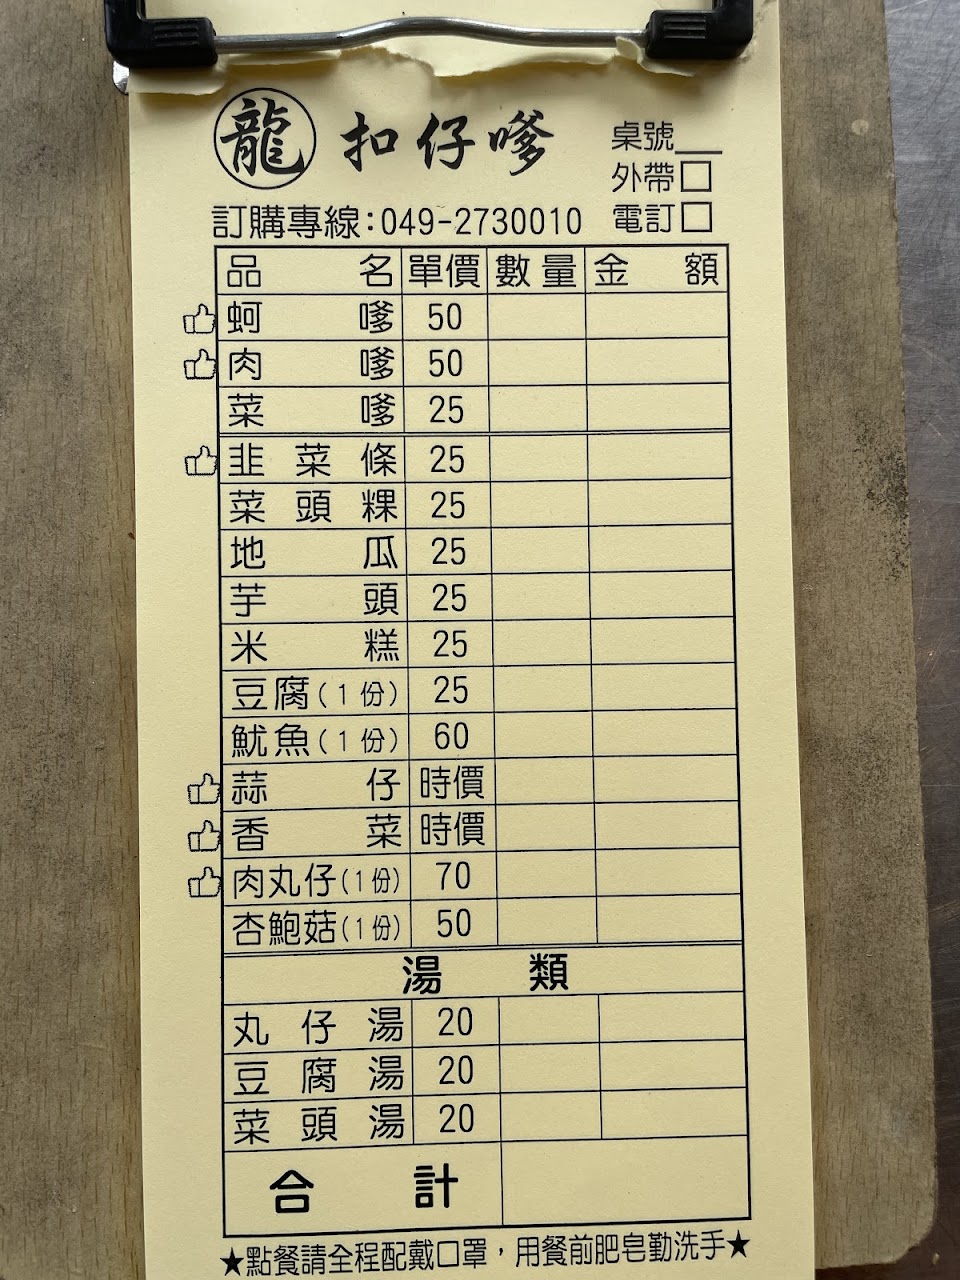 龍 扣仔嗲 桌號__
外帶□
訂購專線:049-2730010 電訂□
品名 單價 數量 金額
蚵嗲 50
肉嗲 50
菜嗲 25
韭菜條 25
菜頭粿 25
地瓜 25
芋頭 25
米糕 25
豆腐(1份) 25
魷魚(1份) 60
蒜仔 時價
香菜 時價
肉丸仔(1份) 70
杏鮑菇(1份) 50
湯類
丸仔湯 20
豆腐湯 20
菜頭湯 20
合計
★點餐請全程配戴口罩，用餐前肥皂勤洗手★